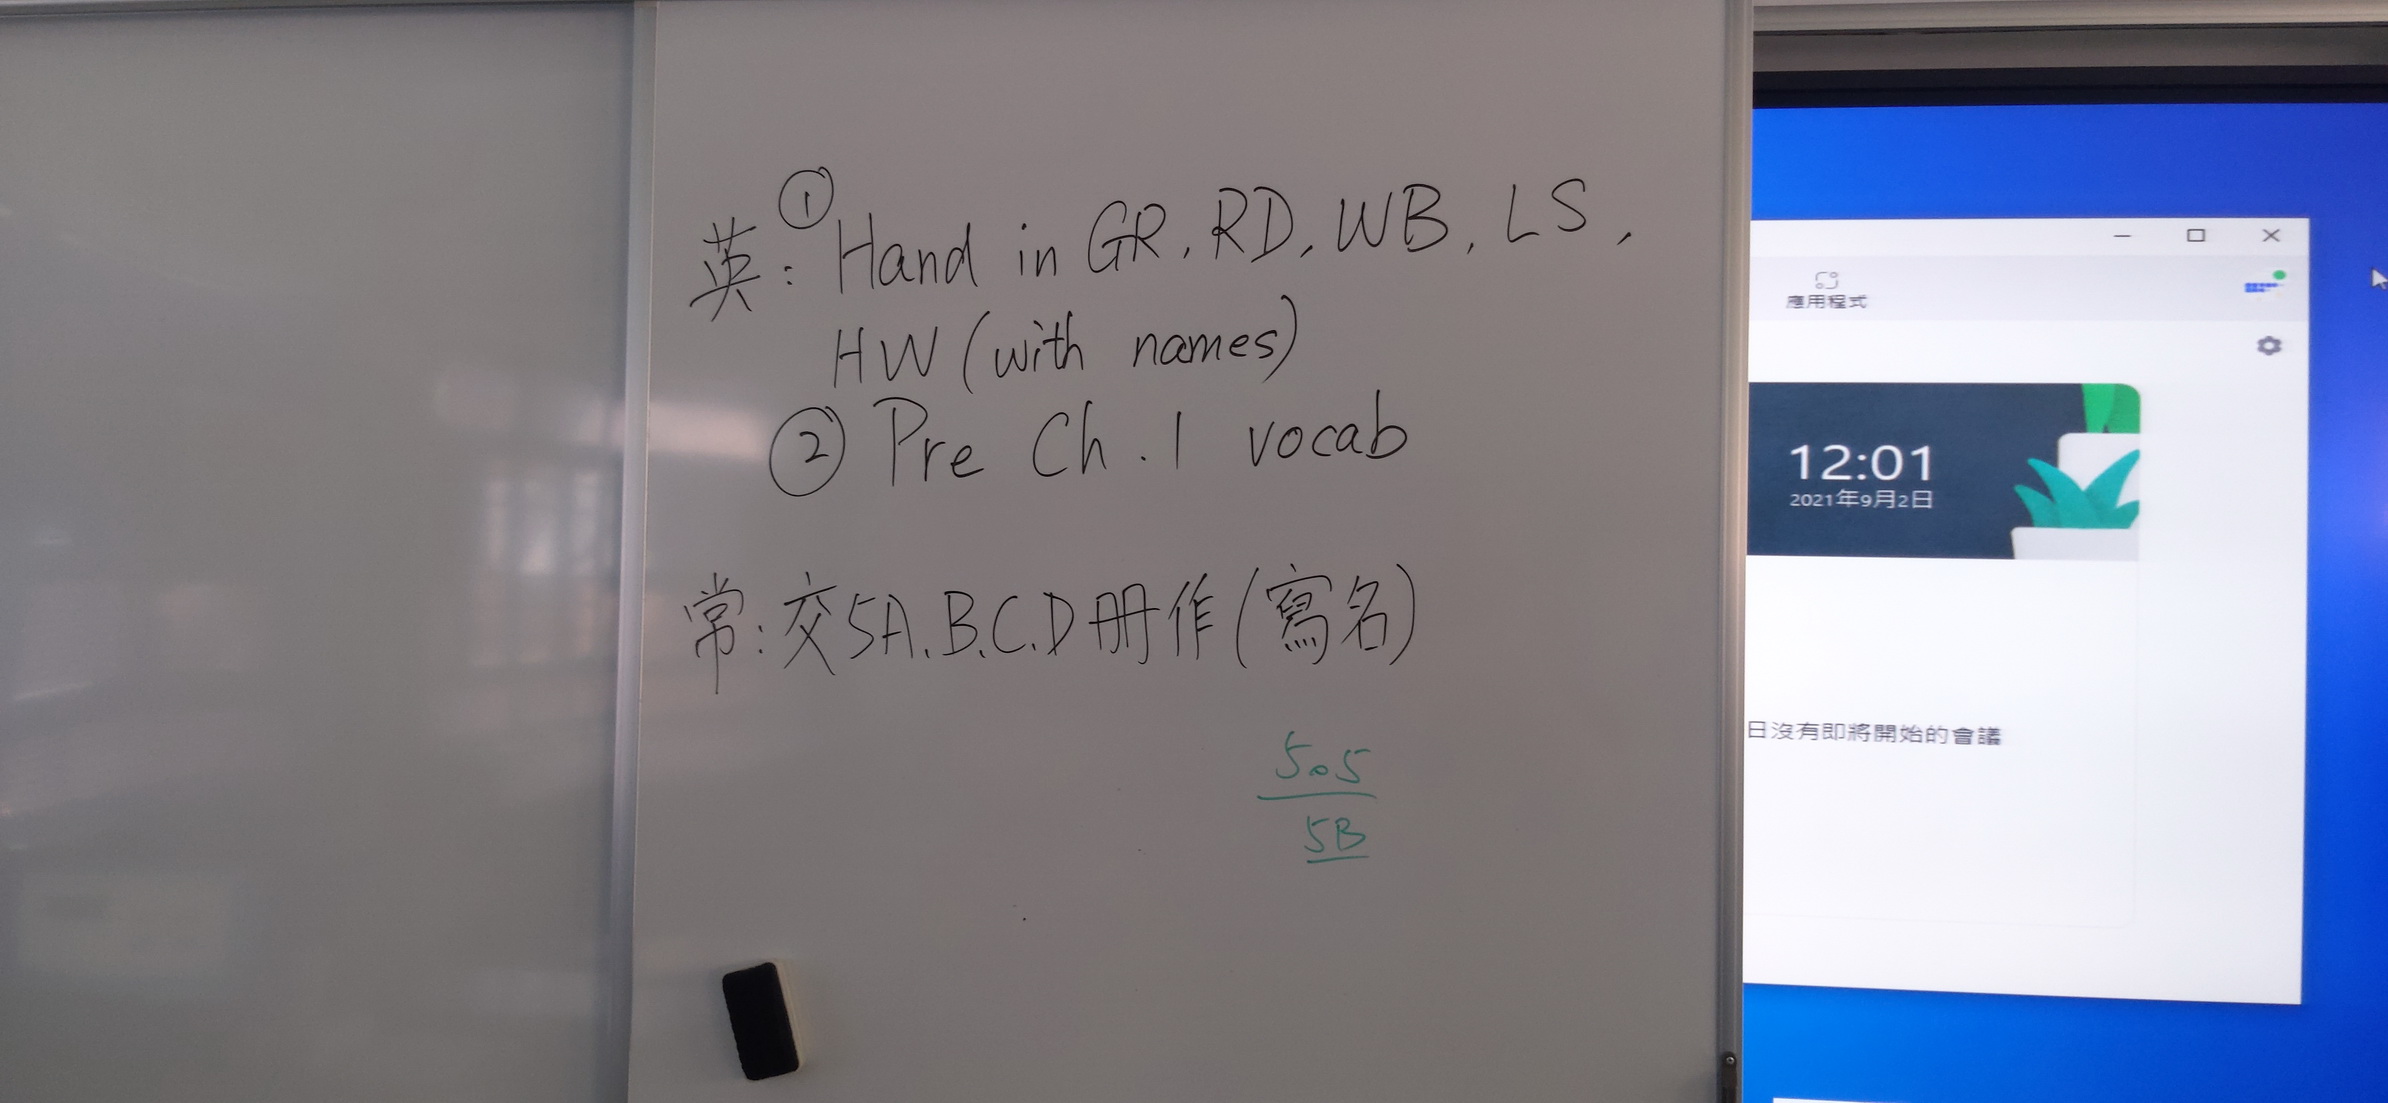 英：① Hand in GR, RD, WB, LS,
HW (with names)
② Pre Ch.1 vocab
常：交5A.B.C.D冊作(寫名)
5.5
5B
應用程式
12:01
2021年9月2日
日沒有即將開始的會議